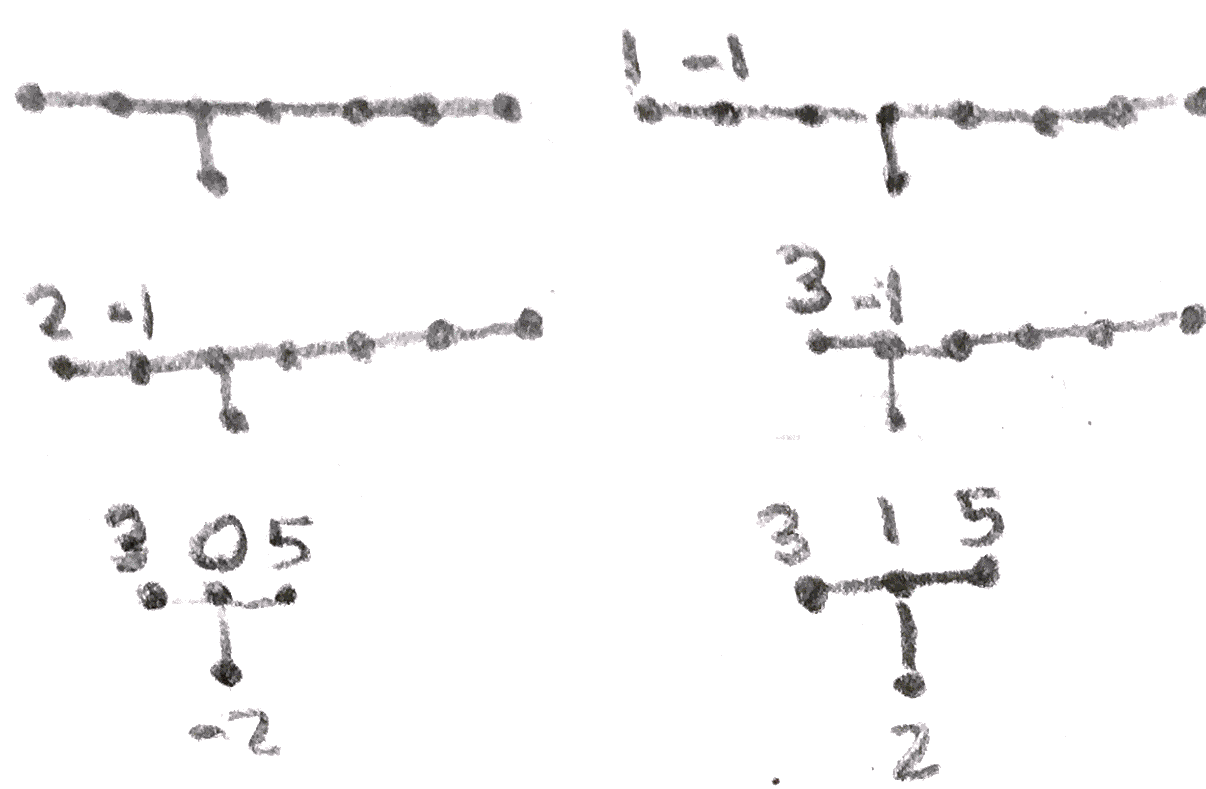 1 -1
2 -1
3 -1
3 0 5
-2
3 1 5
2